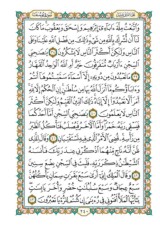 وَٱتَّبَعْتُ مِلَّةَ ءَابَآءِىٓ إِبْرَٰهِيمَ وَإِسْحَٰقَ وَيَعْقُوبَ مَا كَانَ
لَنَآ أَن نُّشْرِكَ بِٱللَّهِ مِن شَىْءٍ ذَٰلِكَ مِن فَضْلِ ٱللَّهِ عَلَيْنَا وَعَلَى
ٱلنَّاسِ وَلَٰكِنَّ أَكْثَرَ ٱلنَّاسِ لَا يَشْكُرُونَ ٣٨ يَٰصَٰحِبَىِ
ٱلسِّجْنِ ءَأَرْبَابٌ مُّتَفَرِّقُونَ خَيْرٌ أَمِ ٱللَّهُ ٱلْوَٰحِدُ ٱلْقَهَّارُ
٣٩ مَا تَعْبُدُونَ مِن دُونِهِۦٓ إِلَّآ أَسْمَآءً سَمَّيْتُمُوهَآ أَنتُمْ
وَءَابَآؤُكُم مَّآ أَنزَلَ ٱللَّهُ بِهَا مِن سُلْطَٰنٍ إِنِ ٱلْحُكْمُ إِلَّا لِلَّهِ
أَمَرَ أَلَّا تَعْبُدُوٓا۟ إِلَّآ إِيَّاهُ ذَٰلِكَ ٱلدِّينُ ٱلْقَيِّمُ وَلَٰكِنَّ أَكْثَرَ
ٱلنَّاسِ لَا يَعْلَمُونَ ٤٠ يَٰصَٰحِبَىِ ٱلسِّجْنِ أَمَّآ أَحَدُكُمَا
فَيَسْقِى رَبَّهُۥ خَمْرًا وَأَمَّا ٱلْءَاخَرُ فَيُصْلَبُ فَتَأْكُلُ ٱلطَّيْرُ
مِن رَّأْسِهِۦ قُضِىَ ٱلْأَمْرُ ٱلَّذِى فِيهِ تَسْتَفْتِيَانِ ٤١ وَقَالَ لِلَّذِى
ظَنَّ أَنَّهُۥ نَاجٍ مِّنْهُمَا ٱذْكُرْنِى عِندَ رَبِّكَ فَأَنسَىٰهُ
ٱلشَّيْطَٰنُ ذِكْرَ رَبِّهِۦ فَلَبِثَ فِى ٱلسِّجْنِ بِضْعَ سِنِينَ
٤٢ وَقَالَ ٱلْمَلِكُ إِنِّىٓ أَرَىٰ سَبْعَ بَقَرَٰتٍ سِمَانٍ يَأْكُلُهُنَّ
سَبْعٌ عِجَافٌ وَسَبْعَ سُنۢبُلَٰتٍ خُضْرٍ وَأُخَرَ يَابِسَٰتٍ
يَٰٓأَيُّهَا ٱلْمَلَأُ أَفْتُونِى فِى رُءْيَٰىَ إِن كُنتُمْ لِلرُّءْيَا تَعْبُرُونَ ٤٣
٢٤٠